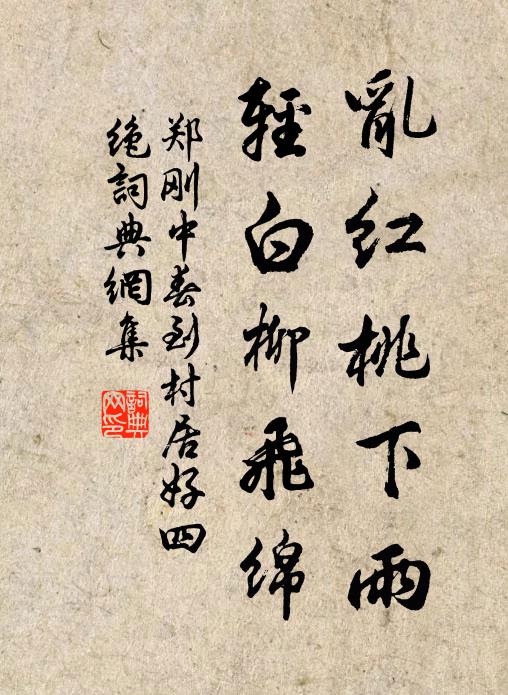 亂紅桃下雨
輕白柳飛綿
郑刚中春到村居好四
绝詞典網集
詞典网印